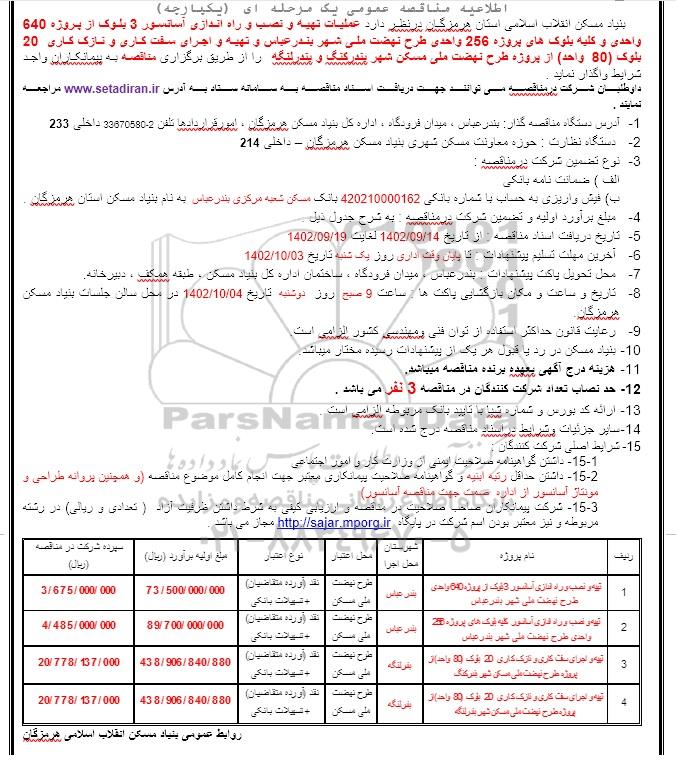 اطلاعیه مناقصه عمومی یک مرحله ای (یکپارچه)
بنیاد مسکن انقلاب اسلامی استان هرمزگان درنظر دارد عملیات تهیه و نصب و راه اندازی آسانسور 3 بلوک از پروژه 640
واحدی و کلیه بلوک های پروژه 256 واحدی طرح نهضت ملی شهر بندرعباس و تهیه و اجرای سفت کاری و نازک کاری 20
بلوک (80 واحد) از پروژه طرح نهضت ملی مسکن شهر بندرکنگ و بندرلنگه را از طریق برگزاری مناقصه به پیمانکاران واجد
شرایط واگذار نماید .
داوطلبان شرکت درمناقصه می توانند جهت دریافت اسناد مناقصه به سامانه ستاد به آدرس www.setadiran.ir مراجعه
نمایند .
1- آدرس دستگاه مناقصه گذار: بندرعباس ، میدان فرودگاه ، اداره کل بنیاد مسکن هرمزگان ، امورقراردادها تلفن 2-33670580 داخلی 233
2- دستگاه نظارت : حوزه معاونت مسکن شهری بنیاد مسکن هرمزگان – داخلی 214
3- نوع تضمین شرکت درمناقصه :
الف ) ضمانت نامه بانکی
ب) فیش واریزی به حساب با شماره بانکی 420210000162 بانک مسکن شعبه مرکزی بندرعباس به نام بنیاد مسکن استان هرمزگان .
4- مبلغ برآورد اولیه و تضمین شرکت درمناقصه : به شرح جدول ذیل .
5- تاریخ دریافت اسناد مناقصه : از تاریخ 1402/09/14 لغایت 1402/09/19
6- آخرین مهلت تسلیم پیشنهادات : تا پایان وقت اداری روز یک شنبه تاریخ 1402/10/03
7- محل تحویل پاکت پیشنهادات : بندرعباس ، میدان فرودگاه ، ساختمان اداره کل بنیاد مسکن ، طبقه همکف ، دبیرخانه.
8- تاریخ و ساعت و مکان بازگشایی پاکت ها : ساعت 9 صبح روز دوشنبه تاریخ 1402/10/04 در محل سالن جلسات بنیاد مسکن
هرمزگان.
9- رعایت قانون حداکثر استفاده از توان فنی ومهندسی کشور الزامی است.
10- بنیاد مسکن در رد یا قبول هر یک از پیشنهادات رسیده مختار میباشد.
11- هزینه درج آگهی بعهده برنده مناقصه میباشد.
12- حد نصاب تعداد شرکت کنندگان در مناقصه 3 نفر می باشد .
13- ارائه کد بورس و شماره شبا با تایید بانک مربوطه الزامی است .
14- سایر جزئیات وشرایط دراسناد مناقصه درج شده است.
15- شرایط اصلی شرکت کنندگان :
15-1- داشتن گواهینامه صلاحیت ایمنی از وزارت کار و امور اجتماعی
15-2- داشتن حداقل رتبه ابنیه و گواهینامه صلاحیت پیمانکاری معتبر جهت انجام کامل موضوع مناقصه (و همچنین پروانه طراحی و
مونتاژ آسانسور از اداره صمت جهت مناقصه آسانسور)
15-3- شرکت پیمانکاران صاحب صلاحیت در مناقصه و ارزیابی کیفی به شرط داشتن ظرفیت آزاد ( تعدادی و ریالی) در رشته
مربوطه و نیز معتبر بودن اسم شرکت در پایگاه http://sajar.mporg.ir مجاز می باشد .
ردیف | نام پروژه | شهرستان محل اجرا | محل اعتبار | نوع اعتبار | مبلغ اولیه برآورد (ریال) | سپرده شرکت در مناقصه (ریال)
1 | تهیه و نصب و راه اندازی آسانسور 3 بلوک از پروژه 640 واحدی طرح نهضت ملی شهر بندرعباس | بندرعباس | طرح نهضت ملی مسکن | نقد (آورده متقاضیان) +تسهیلات بانکی | 73/500/000/000 | 3/675/000/000
2 | تهیه و نصب و راه اندازی آسانسور کلیه بلوک های پروژه 256 واحدی طرح نهضت ملی شهر بندرعباس | بندرعباس | طرح نهضت ملی مسکن | نقد (آورده متقاضیان) +تسهیلات بانکی | 89/700/000/000 | 4/485/000/000
3 | تهیه و اجرای سفت کاری و نازک کاری 20 بلوک (80 واحد) از پروژه طرح نهضت ملی مسکن شهر بندرکنگ | بندرلنگه | طرح نهضت ملی مسکن | نقد (آورده متقاضیان) +تسهیلات بانکی | 438/906/840/880 | 20/778/137/000
4 | تهیه و اجرای سفت کاری و نازک کاری 20 بلوک (80 واحد) از پروژه طرح نهضت ملی مسکن شهر بندرلنگه | بندرلنگه | طرح نهضت ملی مسکن | نقد (آورده متقاضیان) +تسهیلات بانکی | 438/906/840/880 | 20/778/137/000
روابط عمومی بنیاد مسکن انقلاب اسلامی هرمزگان